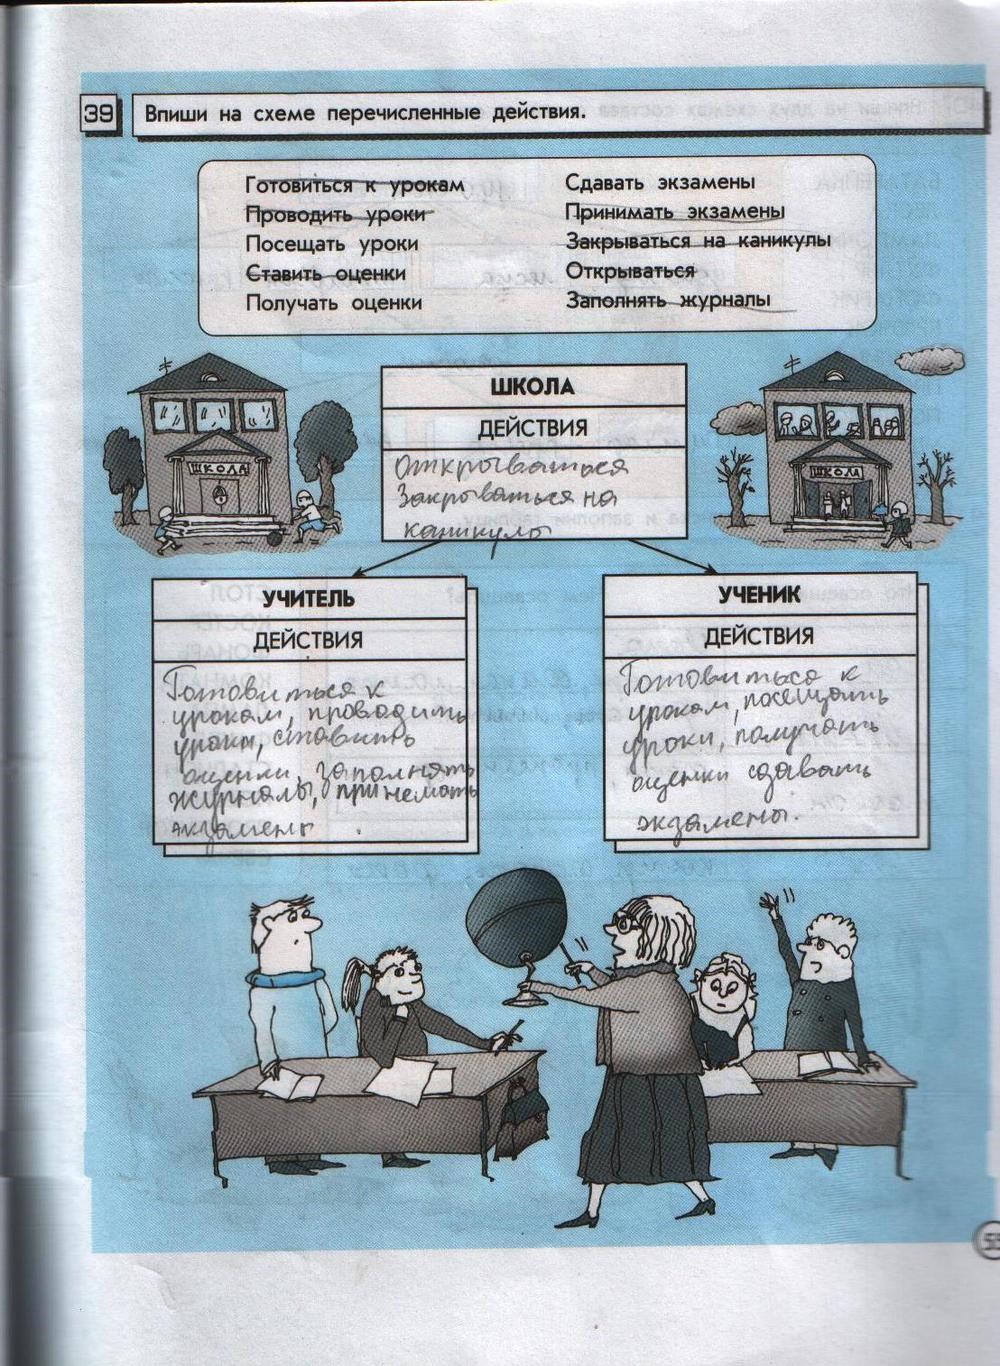 39
Впиши на схеме перечисленные действия.
Готовиться к урокам
Проводить уроки
Посещать уроки
Ставить оценки
Получать оценки
Сдавать экзамены
Принимать экзамены
Закрываться на каникулы
Открываться
Заполнять журналы
ШКОЛА
ШКОЛА
ШКОЛА
ДЕЙСТВИЯ
Открываться
Закрываться на
каникулы
УЧИТЕЛЬ
ДЕЙСТВИЯ
Готовиться к
урокам, проводить
уроки, ставить
оценки, заполнять
журналы, принемать
экзамены
УЧЕНИК
ДЕЙСТВИЯ
Готовиться к
урокам, посещать
уроки, получать
оценки сдавать
экзамены.
55